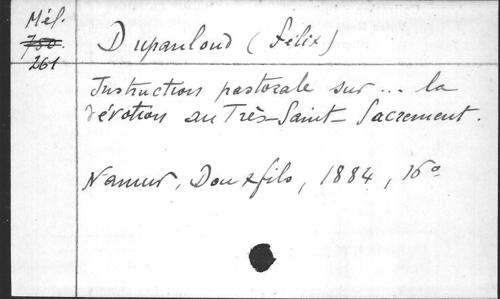 Mél.
780.
261
Dupanloud (Félix)
Instruction pastorale sur... la
dévotion au Très-Saint-Sacrement.
Namur, Douxfils, 1884, 16o